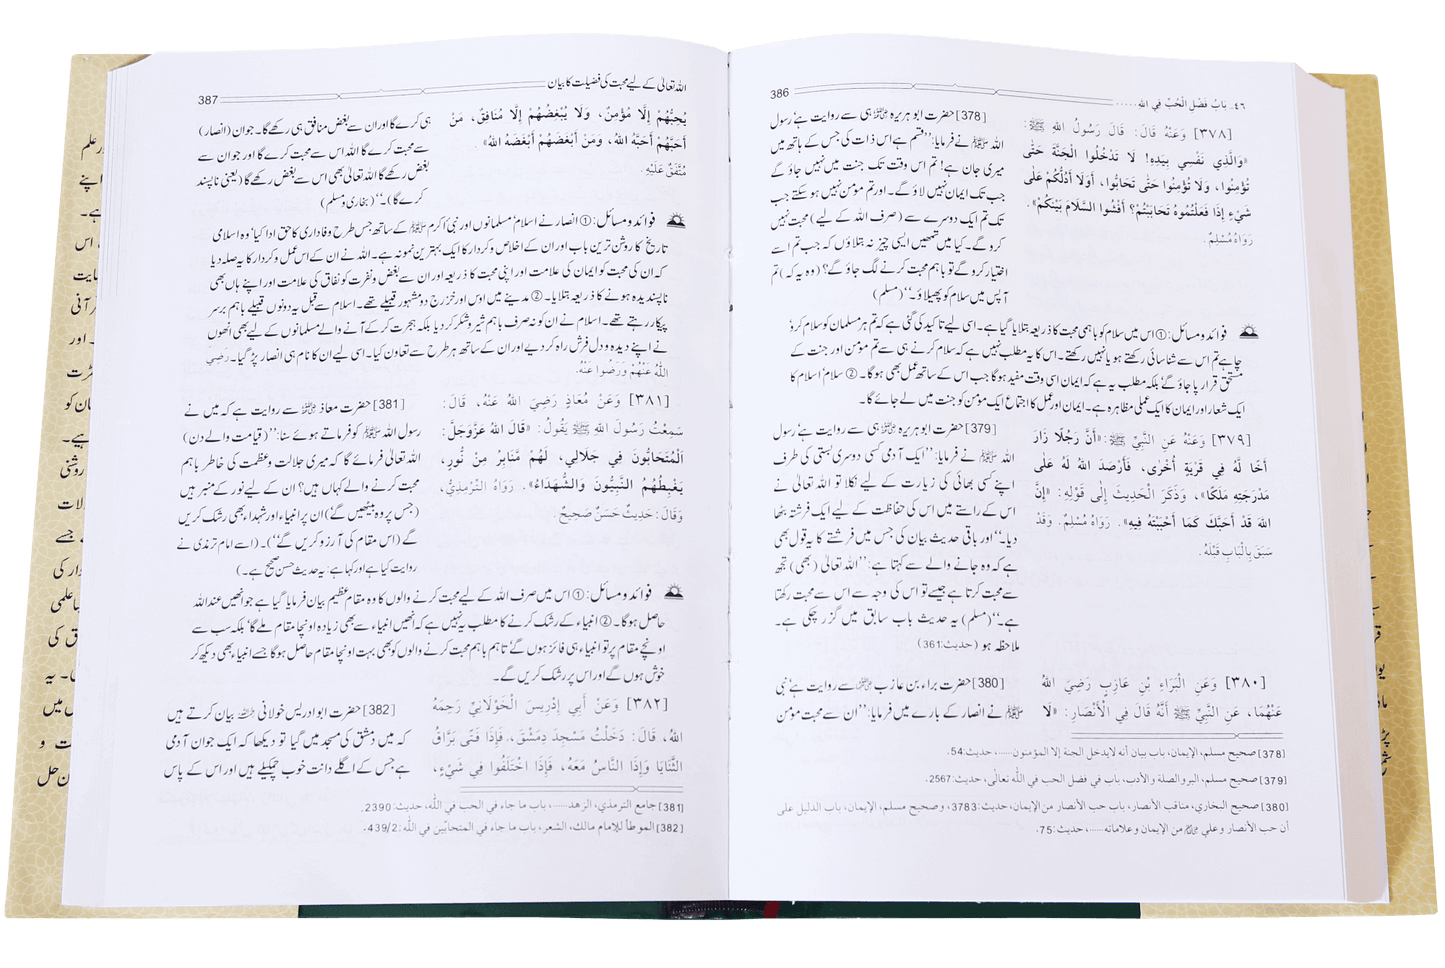 386
٤٦۔ بَابُ فَضْلِ الْحُبِّ فِي اللهِ .....
[٣٧٨] وَعَنْهُ قَالَ: قَالَ رَسُولُ اللهِ ﷺ:
«وَالَّذِي نَفْسِي بِيَدِهِ! لَا تَدْخُلُوا الْجَنَّةَ حَتَّى
تُؤْمِنُوا، وَلَا تُؤْمِنُوا حَتَّى تَحَابُّوا، أَوَلَا أَدُلُّكُمْ عَلَى
شَيْءٍ إِذَا فَعَلْتُمُوهُ تَحَابَبْتُمْ؟ أَفْشُوا السَّلَامَ بَيْنَكُمْ».
رَوَاهُ مُسْلِمٌ.
[378] حضرت ابوہریرہ ؓ ہی سے روایت ہے، رسول
اللہ ﷺ نے فرمایا: ”قسم ہے اس ذات کی جس کے ہاتھ میں
میری جان ہے! تم اس وقت تک جنت میں نہیں جاؤ گے
جب تک ایمان نہیں لاؤ گے۔ اور تم مومن نہیں ہو سکتے جب
تک تم ایک دوسرے سے (صرف اللہ کے لیے) محبت نہیں
کرو گے۔ کیا میں تمھیں ایسی چیز نہ بتلاؤں کہ جب تم اسے
اختیار کرو گے تو باہم محبت کرنے لگ جاؤ گے؟ (وہ یہ کہ) تم
آپس میں سلام کو پھیلاؤ۔“ (مسلم)
فوائد ومسائل: ① اس میں سلام کو باہمی محبت کا ذریعہ بتلایا گیا ہے۔ اسی لیے تاکید کی گئی ہے کہ تم ہر مسلمان کو سلام کرو،
چاہے تم اس سے شناسائی رکھتے ہو یا نہیں رکھتے۔ اس کا یہ مطلب نہیں ہے کہ سلام کرنے ہی سے تم مومن اور جنت کے
مستحق قرار پا جاؤ گے بلکہ مطلب یہ ہے کہ ایمان اسی وقت مفید ہوگا جب اس کے ساتھ عمل بھی ہوگا۔ ② سلام، اسلام کا
ایک شعار اور ایمان کا ایک عملی مظاہرہ ہے۔ ایمان اور عمل کا اجتماع ایک مومن کو جنت میں لے جائے گا۔
[٣٧٩] وَعَنْهُ عَنِ النَّبِيِّ ﷺ: «أَنَّ رَجُلًا زَارَ
أَخًا لَهُ فِي قَرْيَةٍ أُخْرَى، فَأَرْصَدَ اللهُ لَهُ عَلَى
مَدْرَجَتِهِ مَلَكًا»، وَذَكَرَ الْحَدِيثَ إِلَى قَوْلِهِ: «إِنَّ
اللهَ قَدْ أَحَبَّكَ كَمَا أَحْبَبْتَهُ فِيهِ». رَوَاهُ مُسْلِمٌ. وَقَدْ
سَبَقَ بِالْبَابِ قَبْلَهُ.
[379] حضرت ابوہریرہ ؓ ہی سے روایت ہے، رسول
اللہ ﷺ نے فرمایا: ”ایک آدمی کسی دوسری بستی کی طرف
اپنے کسی بھائی کی زیارت کے لیے نکلا تو اللہ تعالیٰ نے
اس کے راستے میں اس کی حفاظت کے لیے ایک فرشتہ بٹھا
دیا۔“ اور باقی حدیث بیان کی جس میں فرشتے کا یہ قول بھی
ہے کہ وہ جانے والے سے کہتا ہے: ”اللہ تعالیٰ (بھی) تجھ
سے محبت کرتا ہے جیسے تو اس کی وجہ سے اس سے محبت رکھتا
ہے۔“ (مسلم) یہ حدیث باب سابق میں گزر چکی ہے۔
ملاحظہ ہو (حدیث: 361)
[٣٨٠] وَعَنِ الْبَرَاءِ بْنِ عَازِبٍ رَضِيَ اللهُ
عَنْهُمَا، عَنِ النَّبِيِّ ﷺ أَنَّهُ قَالَ فِي الْأَنْصَارِ: «لَا
[380] حضرت براء بن عازب ؓ سے روایت ہے، نبی
ﷺ نے انصار کے بارے میں فرمایا: ”ان سے محبت مومن
[378] صحیح مسلم، الإیمان، باب بیان أنه لایدخل الجنة إلا المؤمنون......، حدیث: 54.
[379] صحیح مسلم، البر والصلة والأدب، باب في فضل الحب في اللّٰه تعالٰی، حدیث: 2567.
[380] صحیح البخاري، مناقب الأنصار، باب حب الأنصار من الإیمان، حدیث: 3783، و صحیح مسلم، الإیمان، باب الدلیل علی
أن حب الأنصار و علي ؓ من الإیمان و علاماته......، حدیث: 75.
387
اللہ تعالیٰ کے لیے محبت کی فضیلت کا بیان
يُحِبُّهُمْ إِلَّا مُؤْمِنٌ، وَلَا يُبْغِضُهُمْ إِلَّا مُنَافِقٌ، مَنْ
أَحَبَّهُمْ أَحَبَّهُ اللهُ، وَمَنْ أَبْغَضَهُمْ أَبْغَضَهُ اللهُ».
مُتَّفَقٌ عَلَيْهِ.
ہی کرے گا اور ان سے بغض منافق ہی رکھے گا۔ جو ان (انصار)
سے محبت کرے گا اللہ اس سے محبت کرے گا اور جو ان سے
بغض رکھے گا اللہ تعالیٰ بھی اس سے بغض رکھے گا (یعنی ناپسند
کرے گا)۔“ (بخاری و مسلم)
فوائد ومسائل: ① انصار نے اسلام، مسلمانوں اور نبی اکرم ﷺ کے ساتھ جس طرح وفاداری کا حق ادا کیا، وہ اسلامی
تاریخ کا روشن ترین باب اور ان کے اخلاص وکردار کا ایک بہترین نمونہ ہے۔ اللہ نے ان کے اس عمل وکردار کا یہ صلہ دیا
کہ ان کی محبت کو ایمان کی علامت اور اپنی محبت کا ذریعہ اور ان سے بغض ونفرت کو نفاق کی علامت اور اپنے ہاں بھی
ناپسندیدہ ہونے کا ذریعہ بتلایا۔ ② مدینے میں اوس اور خزرج دو مشہور قبیلے تھے۔ اسلام سے قبل یہ دونوں قبیلے باہم برسر
پیکار رہتے تھے۔ اسلام نے ان کو نہ صرف باہم شیر وشکر کر دیا بلکہ ہجرت کر کے آنے والے مسلمانوں کے لیے بھی انھوں
نے اپنے دیدہ ودل فرش راہ کر دیے اور ان کے ساتھ ہر طرح سے تعاون کیا۔ اسی لیے ان کا نام ہی انصار پڑ گیا۔ رَضِيَ
اللَّهُ عَنْهُمْ وَرَضُوا عَنْهُ.
[٣٨١] وَعَنْ مُعَاذٍ رَضِيَ اللهُ عَنْهُ، قَالَ:
سَمِعْتُ رَسُولَ اللهِ ﷺ يَقُولُ: «قَالَ اللهُ عَزَّوَجَلَّ:
اَلْمُتَحَابُّونَ فِي جَلَالِي، لَهُمْ مَنَابِرُ مِنْ نُّورٍ،
يَغْبِطُهُمُ النَّبِيُّونَ وَالشُّهَدَاءُ». رَوَاهُ التِّرْمِذِيُّ،
وَقَالَ: حَدِيثٌ حَسَنٌ صَحِيحٌ.
[381] حضرت معاذ ؓ سے روایت ہے کہ میں نے
رسول اللہ ﷺ کو فرماتے ہوئے سنا: ”(قیامت والے دن)
اللہ تعالیٰ فرمائے گا کہ میری جلالت وعظمت کی خاطر باہم
محبت کرنے والے کہاں ہیں؟ ان کے لیے نور کے منبر ہیں
(جس پر وہ بیٹھیں گے) ان پر انبیاء اور شہداء بھی رشک کریں
گے (اس مقام کی آرزو کریں گے“)۔ (اسے امام ترمذی نے
روایت کیا ہے اور کہا ہے: یہ حدیث حسن صحیح ہے۔)
فوائد ومسائل: ① اس میں صرف اللہ کے لیے محبت کرنے والوں کا وہ مقام عظیم بیان فرمایا گیا ہے جو انھیں عنداللہ
حاصل ہوگا۔ ② انبیاء کے رشک کرنے کا مطلب یہ نہیں ہے کہ انھیں انبیاء سے بھی زیادہ اونچا مقام ملے گا، بلکہ سب سے
اونچے مقام پر تو انبیاء ہی فائز ہوں گے، تاہم باہم محبت کرنے والوں کو بھی بہت اونچا مقام حاصل ہوگا جسے انبیاء بھی دیکھ کر
خوش ہوں گے اور اس پر رشک کریں گے۔
[٣٨٢] وَعَنْ أَبِي إِدْرِيسَ الْخَوْلَانِيِّ رَحِمَهُ
اللهُ، قَالَ: دَخَلْتُ مَسْجِدَ دِمَشْقَ، فَإِذَا فَتًى بَرَّاقُ
الثَّنَايَا وَإِذَا النَّاسُ مَعَهُ، فَإِذَا اخْتَلَفُوا فِي شَيْءٍ،
[382] حضرت ابو ادریس خولانی ؒ بیان کرتے ہیں
کہ میں دمشق کی مسجد میں گیا تو دیکھا کہ ایک جوان آدمی
ہے جس کے اگلے دانت خوب چمکیلے ہیں اور اس کے پاس
[381] جامع الترمذي، الزهد......، باب ما جاء في الحب في اللّٰه، حدیث: 2390.
[382] الموطأ للإمام مالك، الشعر، باب ما جاء في المتحابّین في اللّٰه: 439/2.